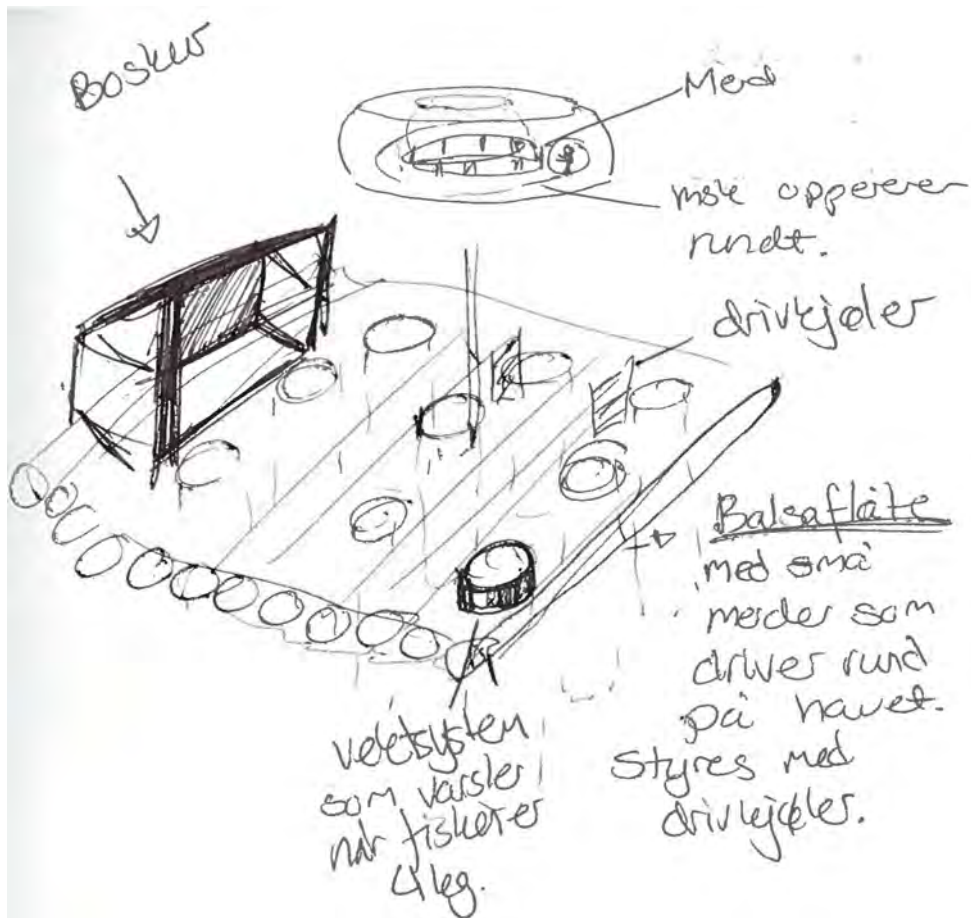 Mærd
opererer
rundt.
drivkjøler
Balsaflåte
med små
merder som
driver rund
på havet.
Styres med
drivkjøler.
som varsler
når fisken er
4 kg.